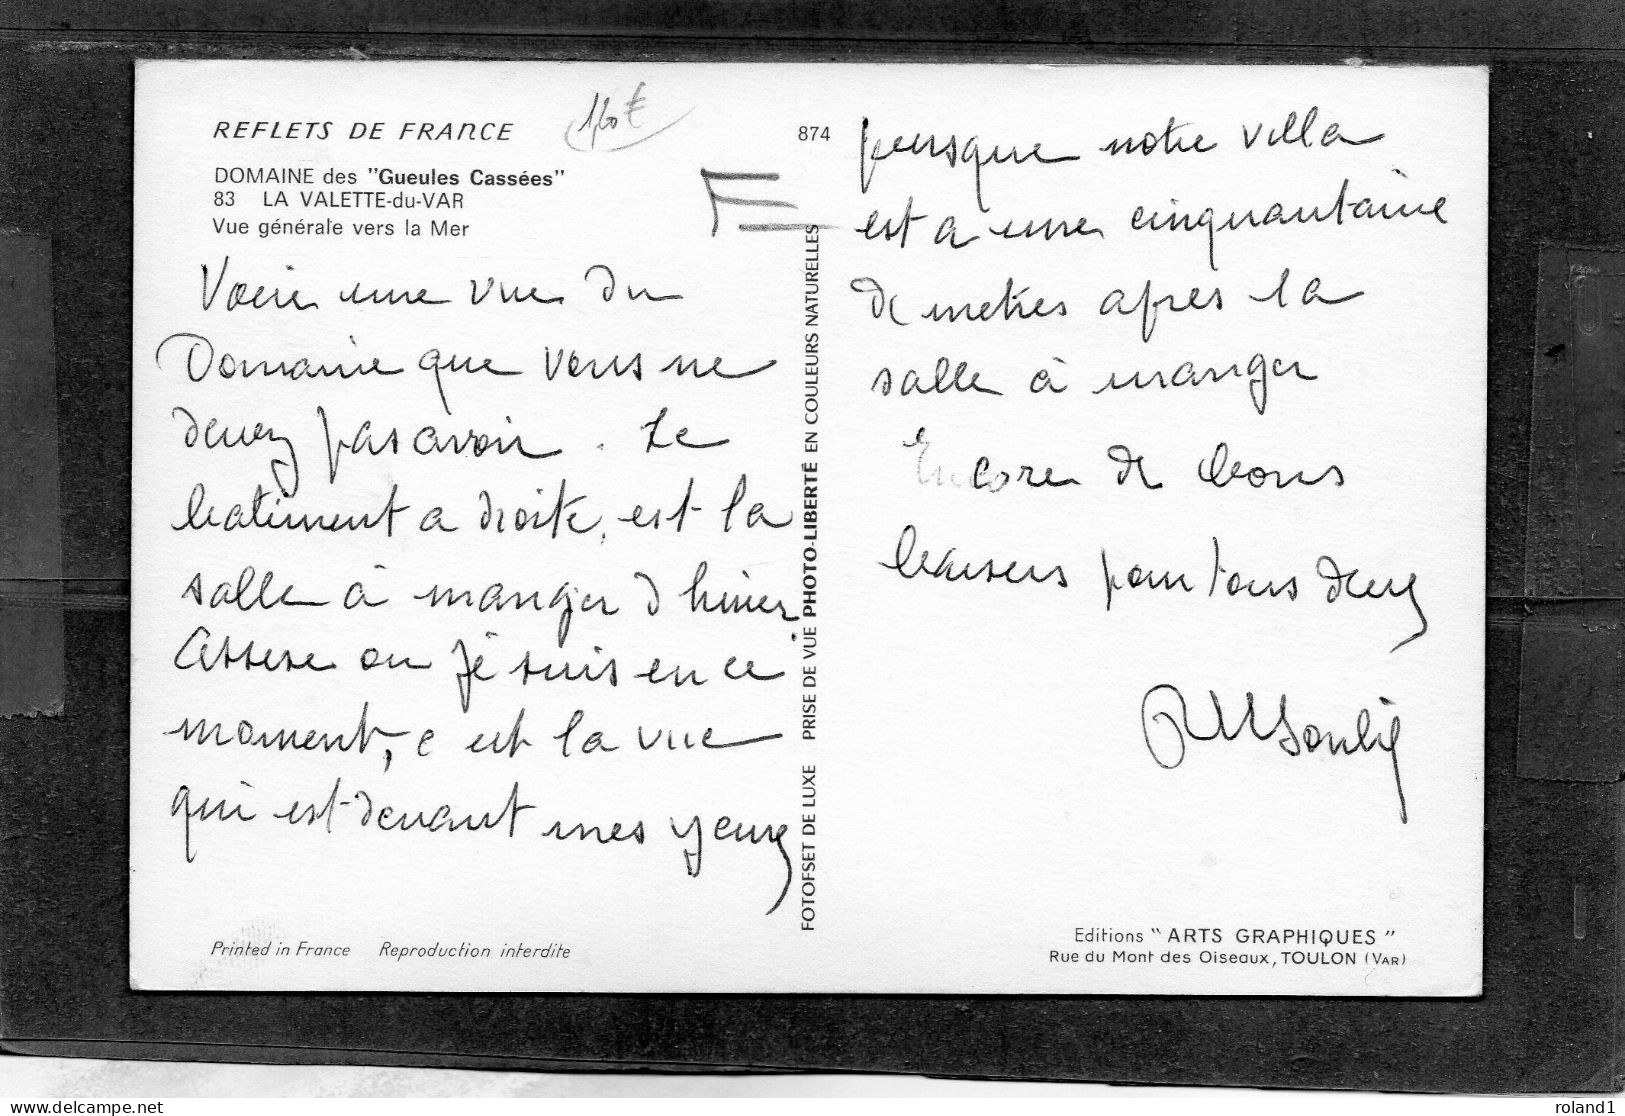 REFLETS DE FRANCE
1,60€
DOMAINE des "Gueules Cassées"
83 LA VALETTE-du-VAR
Vue générale vers la Mer
874
Voici une vue du
Domaine que vous ne
devez pas avoir. Le
batiment a droite, est la
salle à manger d hiver
Assise ou je suis en ce
moment, c est la vue
qui est devant mes yeux
FOTOFSET DE LUXE PRISE DE VUE PHOTO-LIBERTÉ EN COULEURS NATURELLES
puisque notre villa
est a une cinquantaine
de metres après la
salle à manger
Encore de bons
baisers pour tous deux
Printed in France Reproduction interdite
Editions "ARTS GRAPHIQUES"
Rue du Mont des Oiseaux, TOULON (VAR)
delcampe.net
roland1